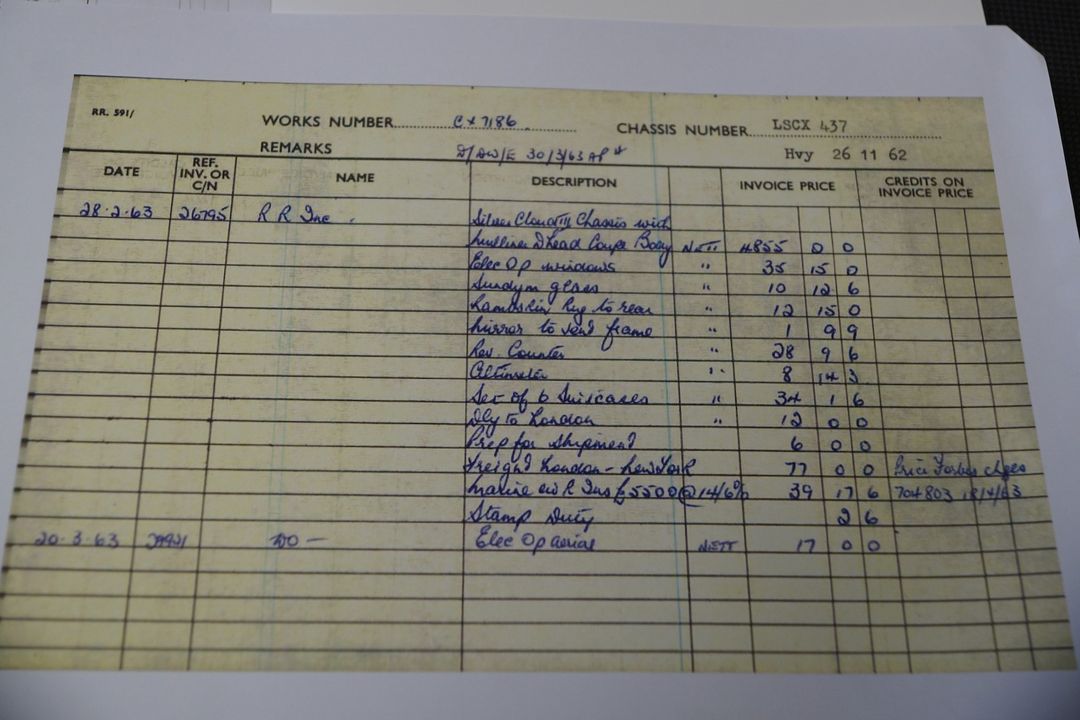 RR. 591/
WORKS NUMBER CX 7186 CHASSIS NUMBER LSCX 437
REMARKS 30/3/63 Hvy 26 11 62
DATE REF. INV. OR C/N NAME DESCRIPTION INVOICE PRICE CREDITS ON INVOICE PRICE
28.2.63 26795 R R Inc. Silver Cloud III Chassis with
Mulliner D head Coupe Body NETT 4855 0 0
Elec Op windows " 35 15 0
Sundym glass " 10 12 6
Lambskin Rug to rear " 12 15 0
Mirror to frame " 1 9 9
Rev. Counter " 28 9 6
Altimeter " 8 14 3
Set of 6 Suitcases " 34 1 6
Dly to London " 12 0 0
Prep for Shipment 6 0 0
Freight London - New York 77 0 0 Price Forbes
Marine W R Ins £5500 @ 14/6% 39 17 6 704803 18/4/63
Stamp Duty 2 6
20.3.63 DO — Elec Op aerial NETT 17 0 0